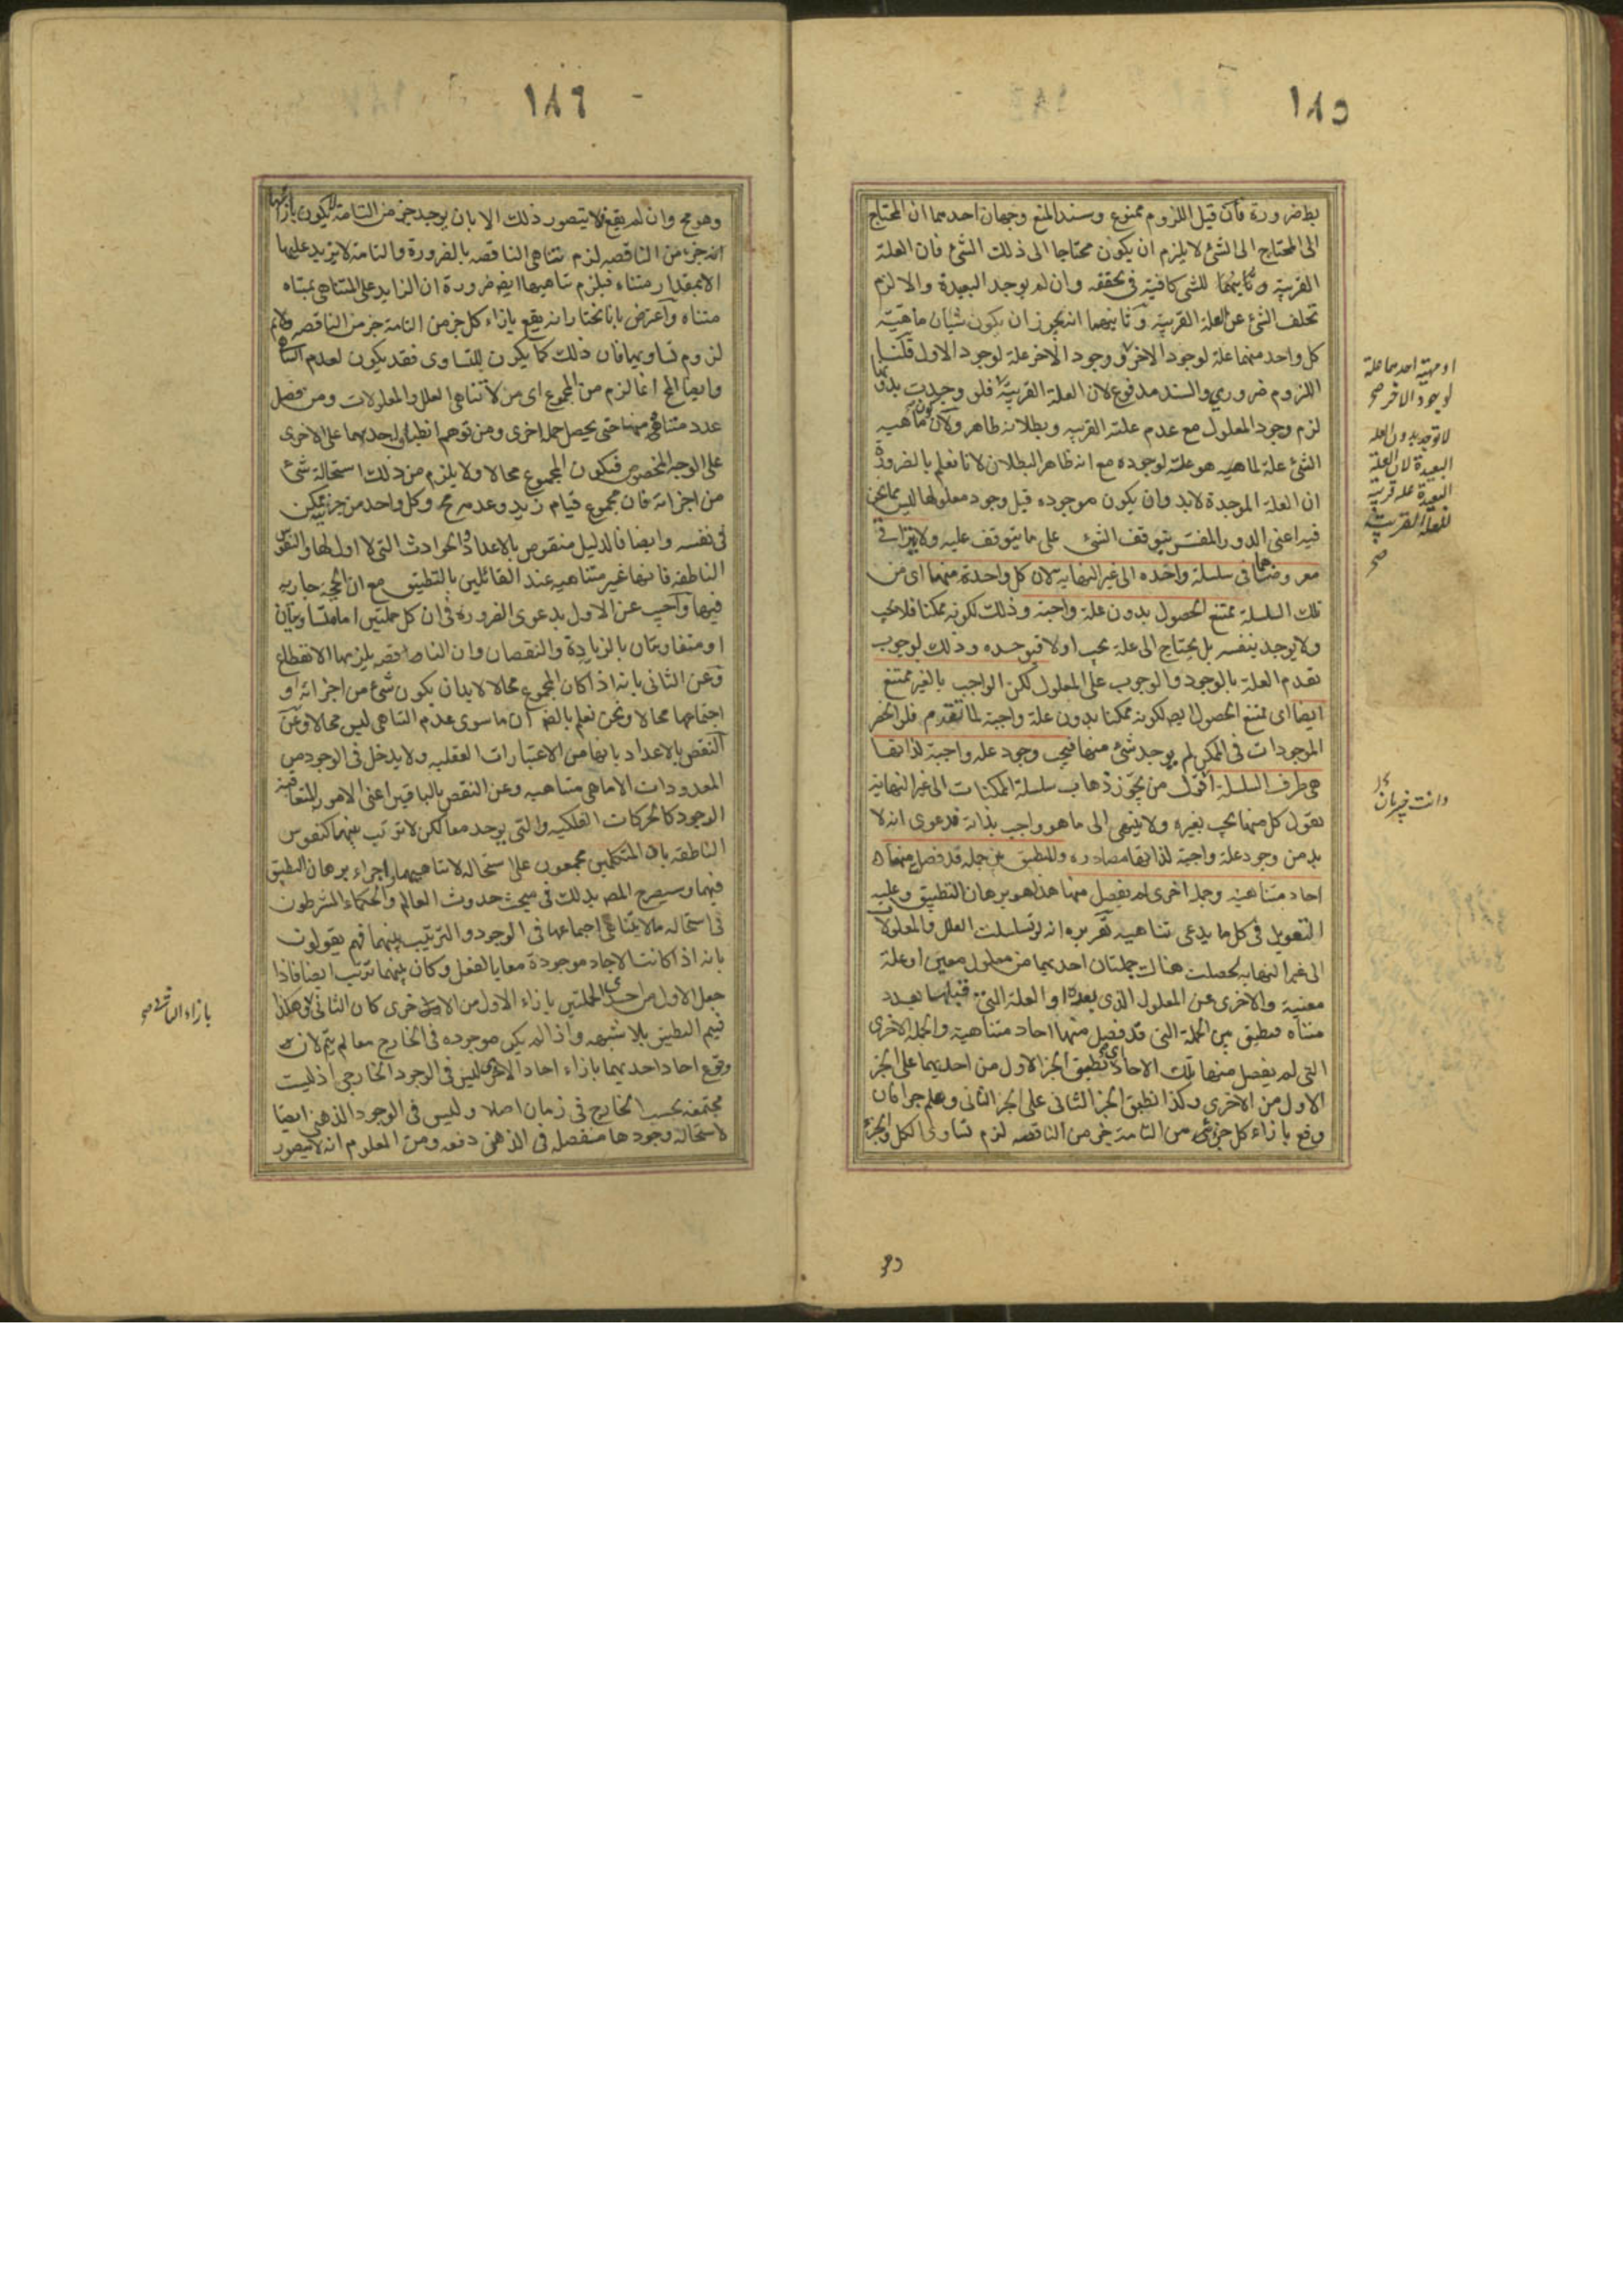 ١٨٥
بط ضرورة فان قيل اللزوم ممنوع وسند المنع وجهان احدهما ان المحتاج
الى المحتاج الى الشئ لا يلزم ان يكون محتاجا الى ذلك الشئ فان العلة
القريبة كافية فى تحققه وان لم يوجد البعيدة والا لزم
تخلف الشئ عن العلة القريبة وثانيهما انه يجوز ان يكون شيئان ماهية
كل واحد منهما علة لوجود الاخر ووجود الاخر علة لوجود الاول قلنا
اللزوم ضروري والسند مدفوع لان العلة القريبة فلو وجدت بدونها
لزم وجود المعلول مع عدم علته القريبه وبطلانه ظاهر ولان كون ماهيه
الشئ علة لماهيه هو علة لوجوده مع انه ظاهر البطلان لانا نعلم بالضرورة
ان العلة الموجدة لابد وان يكون موجوده قبل وجود معلولها ليس مما نحن
فيه اعنى الدور المفسر بتوقف الشئ على ما يتوقف عليه ولا يتراقى
معروضاهما فى سلسلة واحده الى غير النهايه لان كل واحدة منهما اى من
تلك السلسلة ممتنع الحصول بدون علة واجبة وذلك لكونه ممكنا فلا يجب
ولا يوجد بنفسه بل يحتاج الى علة يجب اولا فيوجده وذلك لوجوب
تقدم العلة بالوجود والوجوب على المعلول لكن الواجب بالغير ممتنع
ايضا اى ممتنع الحصول ايضا لكونه ممكنا بدون علة واجبة لما تقدم فلو انحصر
الموجودات فى الممكن لم يوجد شئ منها فيجب وجود علة واجبة لذاتها
هى طرف السلسلة اقول من يجوّز ذهاب سلسلة الممكنات الى غير النهاية
يقول كل منها يجب بغيره ولا ينتهى الى ما هو واجب بذاته فدعوى انه لا
بد من وجود علة واجبة لذاتها مصادره وللتطبيق بين جملة قد فصل منها
احاد متناهية وجملة اخرى لم يفصل منها هذا هو برهان التطبيق وعليه
التعويل فى كل ما يدعى تناهيه تقريره انه لو تسلسلت العلل والمعلولات
الى غير النهايه لحصلت هناك جملتان احديهما من معلول معين او علة
معينة والاخرى من المعلول الذى بعده او العلة التى قبلها بعدد
متناه فيطبق بين الجملة التى قد فصل منها احاد متناهية والجملة الاخرى
التى لم يفصل منها تلك الاحاد اى يطبق الجزء الاول من احديهما على الجزء
الاول من الاخرى وكذا نطبق الجزء الثانى على الجزء الثانى وهلم جرا فان
وقع بازاء كل جزء من التامة جزء من الناقصه لزم تساوى الكل والجزء
او مهية احدهما علة
لوجود الاخر صح
لا توجد بدون العله
البعيدة لان العلة
البعيدة علة قريبة
للعلة القريبة
صح
وانت خبير بان
وهو
١٨٦
وهو مح وان لم يقع فلا يتصور ذلك الا بان يوجد جزء من التامة لا يكون بازائها
جزء من الناقصه لزم تناهى الناقصه بالضرورة والتامة لا تزيد عليها
الا بمقدار متناه فيلزم تناهيها ايضا ضرورة ان الزايد على المتناهى بمتناه
متناه واعترض بانا نختار انه يقع بازاء كل جزء من التامة جزء من الناقصه ولا نم
لزوم تساويهما فان ذلك كما يكون للتساوى فقد يكون لعدم التناهى
وايضا المح انما لزم من المجموع اى من لا تناهى العلل والمعلولات ومن فصل
عدد متناهى منها حتى يحصل جملة اخرى ومن توهم انطباق احديهما على الاخرى
على الوجه المخصوص فيكون المجموع محالا ولا يلزم من ذلك استحالة شئ
من اجزائه فان مجموع قيام زيد وعدمه مح وكل واحد من جزئيه ممكن
فى نفسه وايضا فالدليل منقوض بالاعداد والحوادث التى لا اول لها والنفوس
الناطقه فانها غير متناهيه عند القائلين بالتطبيق مع ان الحجة جاريه
فيها واجيب عن الاول بدعوى الضروره فى ان كل جملتين اما متساويتان
او متفاوتتان بالزيادة والنقصان وان الناقصه يلزمها الانقطاع
وعن الثانى بانه اذا كان المجموع محالا لابد ان يكون شئ من اجزائه او
اجتماعها محالا ونحن نعلم بالضرورة ان ما سوى عدم التناهى ليس محالا وعن
النقض بالاعداد بانها من الاعتبارات العقليه ولا يدخل فى الوجود من
المعدودات الا ما هى متناهيه وعن النقض بالباقيين اعنى الامور المتعاقبة
الوجود كالحركات الفلكيه والتى يوجد معا لكن لا ترتب بينهما كنفوس
الناطقه بان المتكلمين مجمعون على استحاله لا تناهيهما واجراء برهان التطبيق
فيهما وسيصرح المص بذلك فى مبحث حدوث العالم والحكماء الشرطون
فى استحاله ما لا يتناهى اجتماعها فى الوجود والترتيب بينهما فهم يقولون
بانه اذا كانت الاحاد موجودة معا بالفعل وكان بينهما ترتب ايضا فاذا
جعل الاول من احدى الجملتين بازاء الاول من الاخرى كان الثانى وهكذا
فيتم التطبيق بلا شبهه واذا لم يكن موجوده فى الخارج معا لم يتم لان
وقوع احاد احديهما بازاء احاد الاخرى ليس فى الوجود الخارجى اذ ليست
مجتمعة بحسب الخارج فى زمان اصلا وليس فى الوجود الذهنى ايضا
لاستحالة وجودها منفصله فى الذهن دفعه ومن المعلوم انه لا يتصور
بازاء الثانى صح